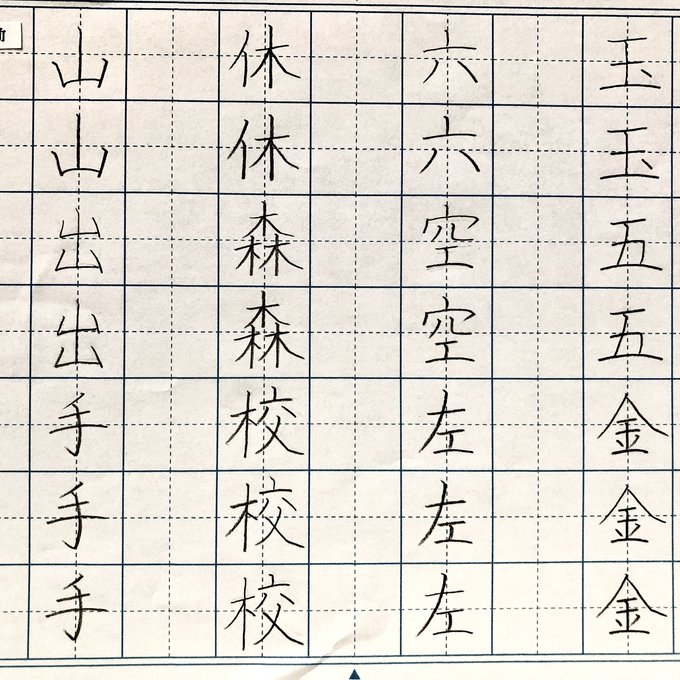 玉玉五五金金金
六六空空左左左
休休森森校校校
山山出出手手手